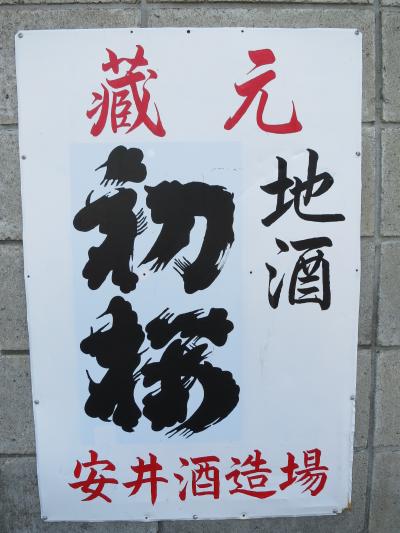 藏元
地酒
初桜
安井酒造場